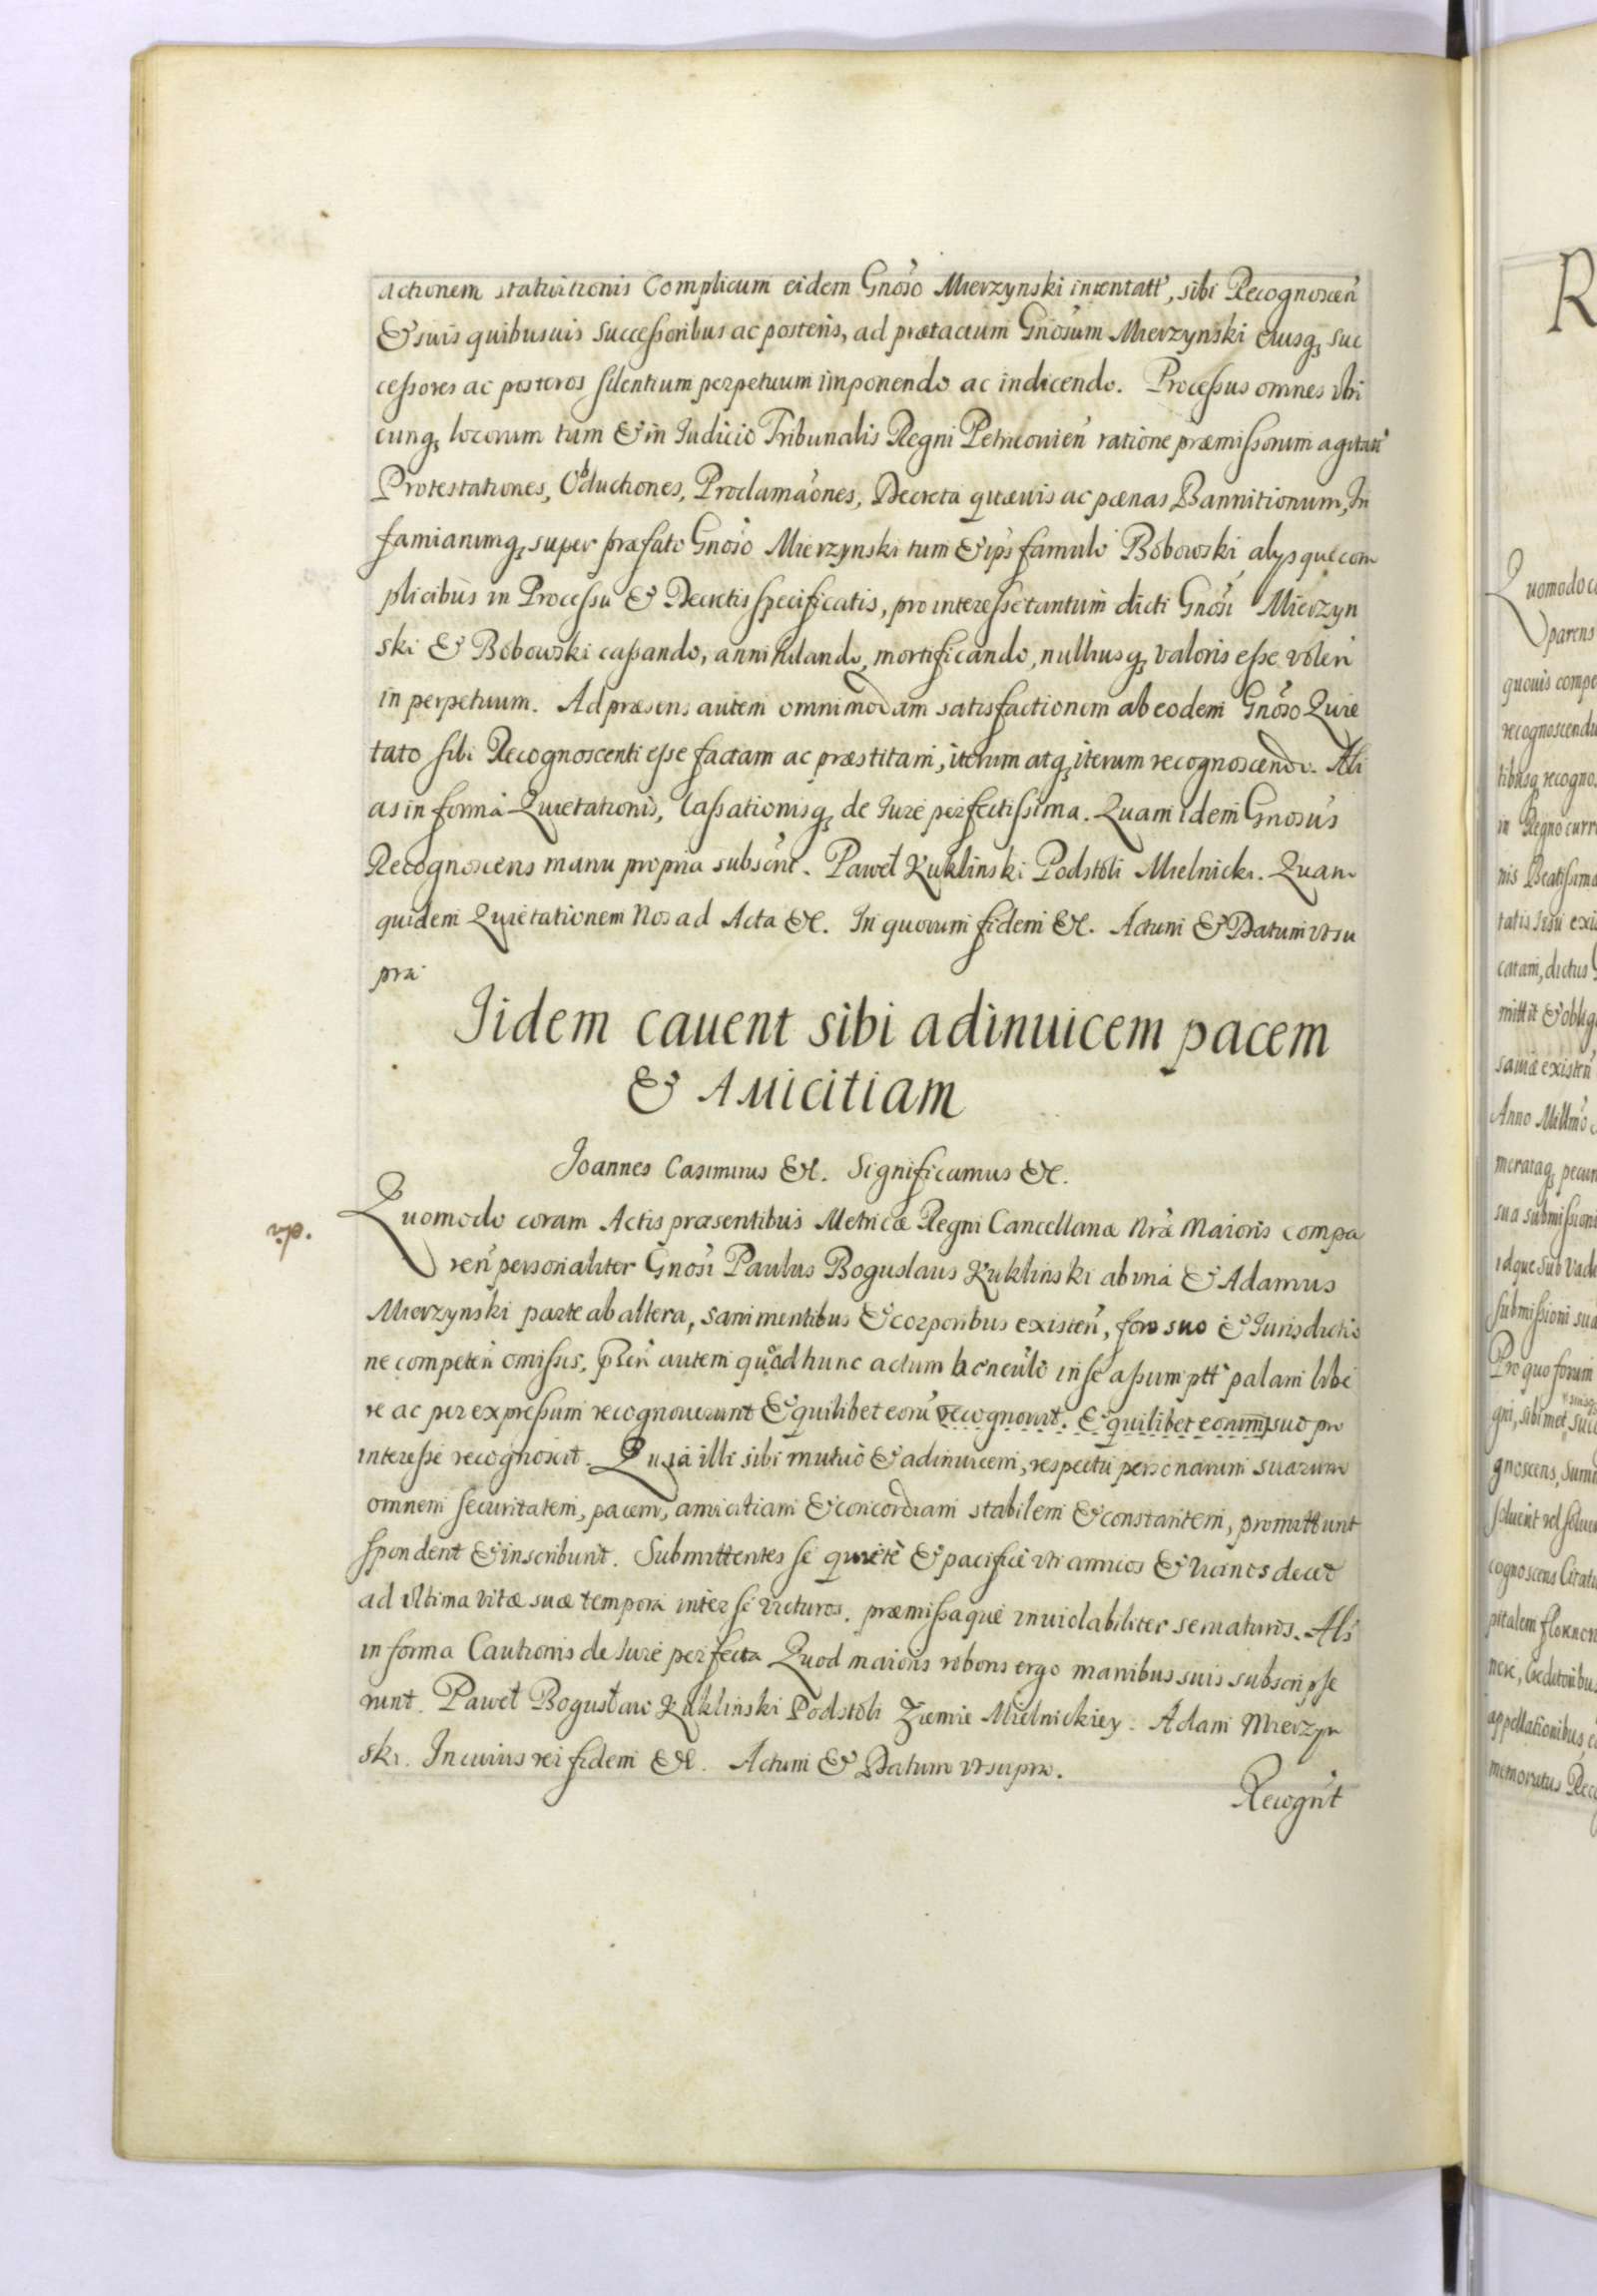 actionem statuitionis Complicum eidem Gnoso Mierzynski intentatt, sibi Recognoscen
& suis quibusuis Successoribus ac posteris, ad prætactum Gnosum Mierzynski eiusq suc
cessores ac posteros silentium perpetuum imponendo ac indicendo. Processus omnes vbi
cunq locorum tum & in Judicio Tribunalis Regni Petricouien ratione præmissorum agitatt
Protestationes, Obductiones, Proclamaones, Decreta quæuis ac pænas Bannitionum, In
famianumq super præfato Gnoso Mierzynski tum & ips famulo Bobowski alysque com
plicibus in Processu & Decretis specificatis, pro interesse tantum dicti Gnosi Mierzyn
ski & Bobowski cassando, annihilando, mortificando, nulliusq valoris esse volen
in perpetuum. Ad præsens autem omnimodam satisfactionem ab eodem Gnoso Quie
tato sibi Recognoscenti esse factam ac præstitam, iterum atq iterum recognoscendo. Ali
as in forma Quietationis, Cassationisq de Jure perfectissima. Quam idem Gnosus
Recognoscens manu propria subscrit. Paweł Kuklinski Podstoli Mielnicki. Quam
quidem Quietationem Nos ad Acta &c. In quorum fidem &c. Actum & Datum vt su
pra
Jidem cauent sibi adinuicem pacem
& Amicitiam
Joannes Casimirus &c. Significamus &c.
Quomodo coram Actis præsentibus Metricæ Regni Cancellariæ Nræ Maioris compa
ren personaliter Gnosi Paulus Boguslaus Kuklinski ab vna & Adamus
Mierzynski parte ab altera, sani mentibus & corporibus existen, foro suo & Jurisdictio
ne competen omissis, pren autem quoad hunc actum hac incule in se assumptt palam libe
re ac per expressum recognouerunt & quilibet eoru recognouit. & quilibet eorum suo pro
interesse recognoscit. Quia illi sibi mutuo & adinuicem, respectu personarum suarum
omnem securitatem, pacem, amicitiam & concordiam stabilem & constantem, promittunt
spondent & inscribunt. Submittentes se quiete & pacifice vti amicos & vicinos decet
ad vltima vitæ suæ tempora inter se victuros. præmissaque inuiolabiliter seruaturos. Als
in forma Cautionis de Jure perfecta Quod maioris roboris ergo manibus suis subscripse
runt. Paweł Bogusław Kuklinski Podstoli Ziemie Mielnickiey. Adam Mierzyn
ski. In cuius rei fidem &c. Actum & Datum vt supra.
Recognit